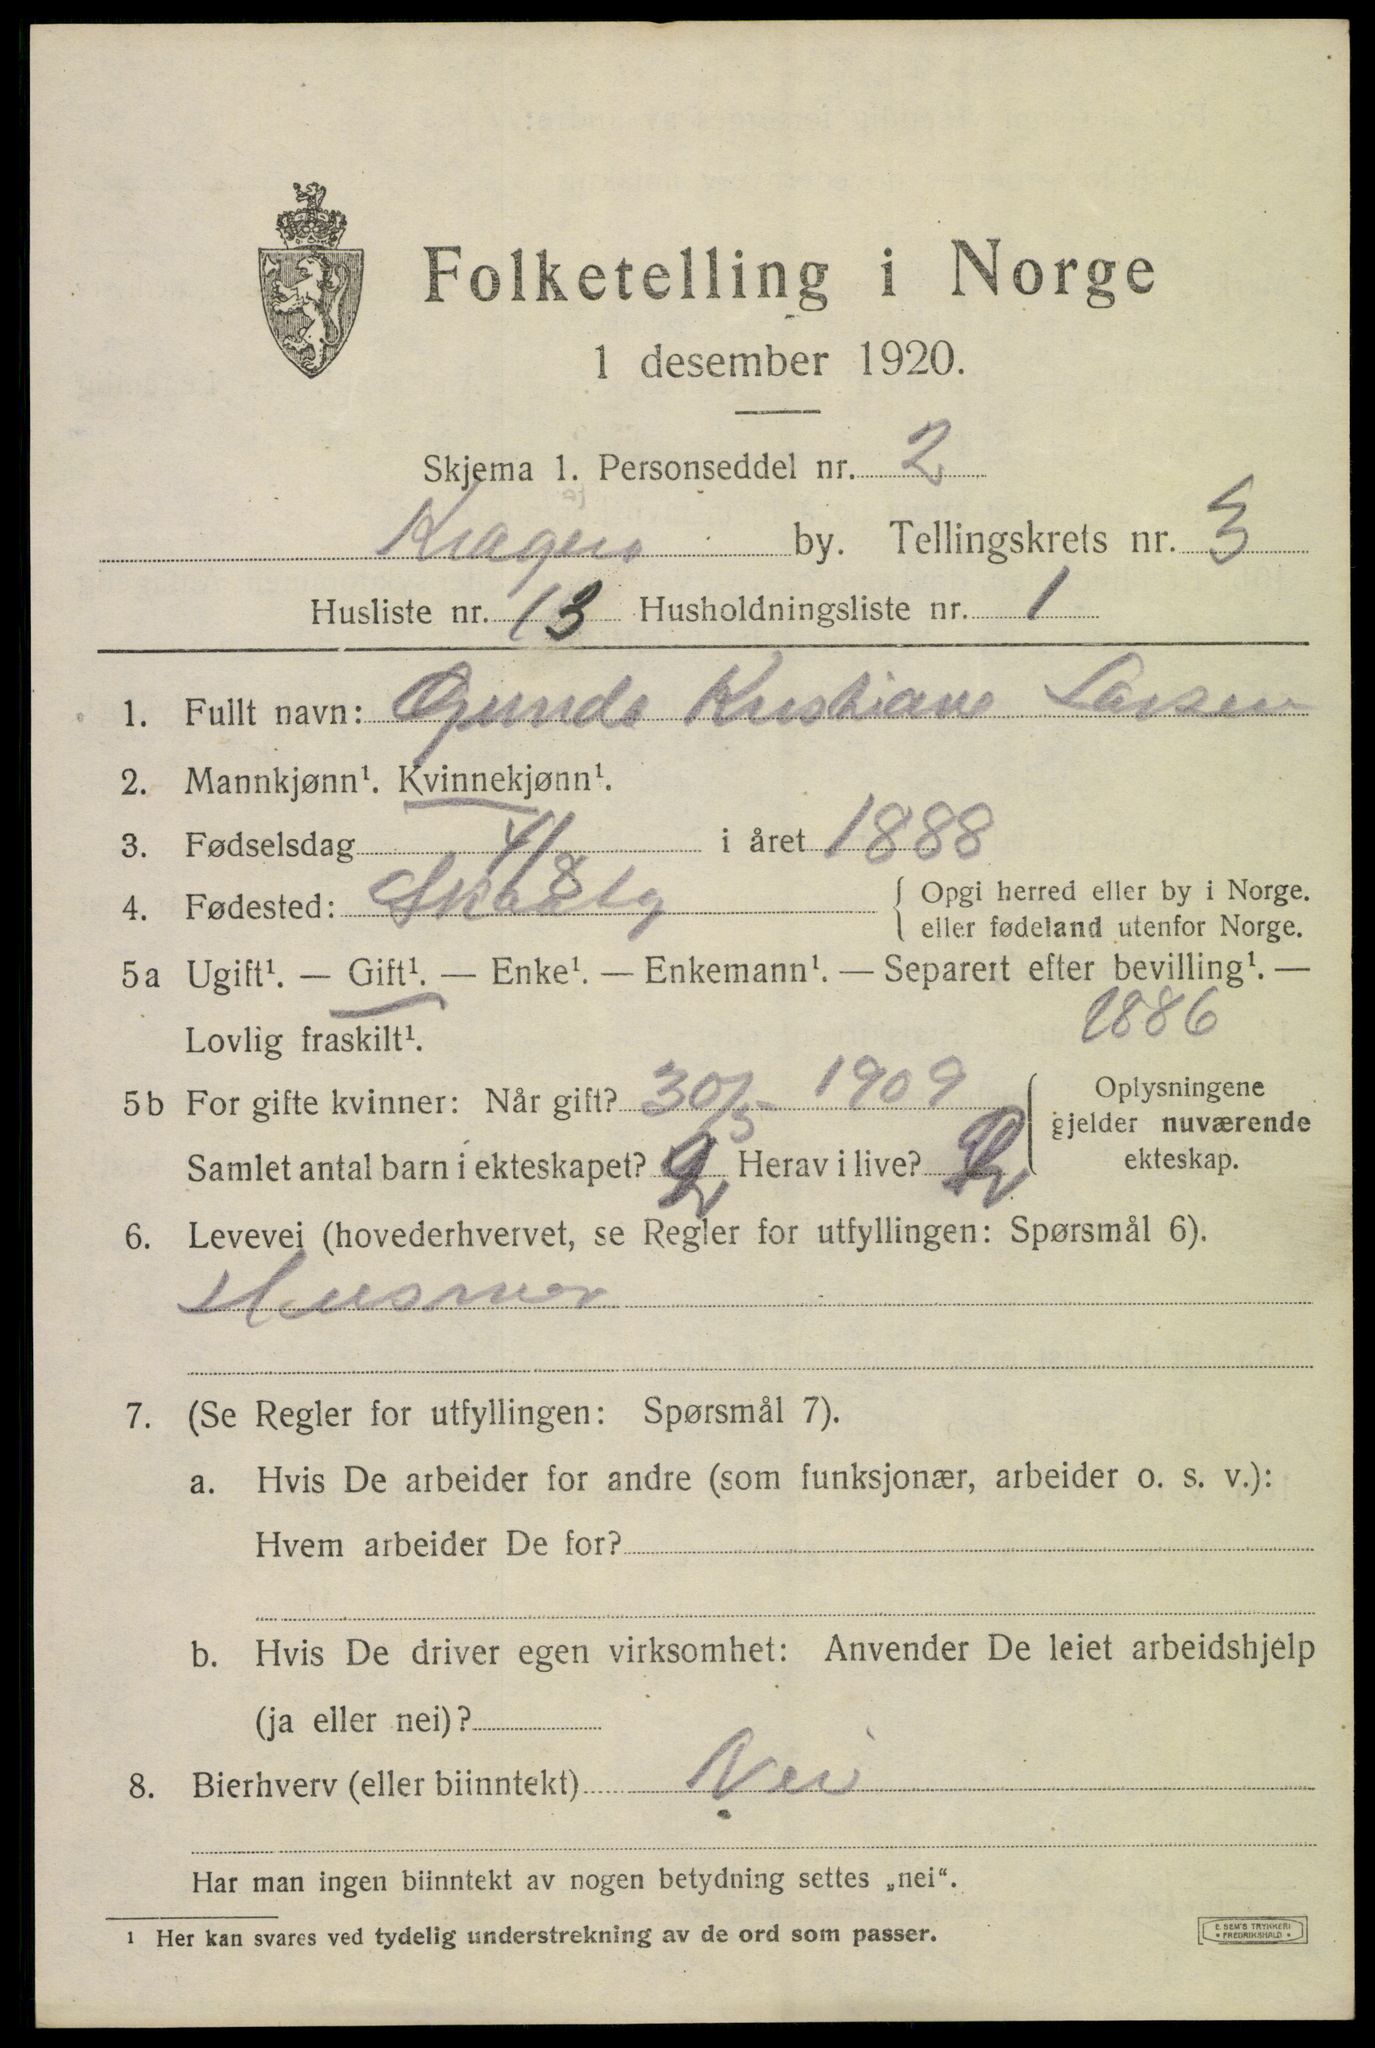 Folketelling i Norge
1 desember 1920.
Skjema 1. Personseddel nr. 2
Kragerø by. Tellingskrets nr. 3
Husliste nr. 13 Husholdningsliste nr. 1
1. Fullt navn: Gunda Kristiane Larsen
2. Mannkjønn¹. Kvinnekjønn¹.
3. Fødselsdag 4/8 i året 1888
4. Fødested: Skaatø { Opgi herred eller by i Norge.
eller fødeland utenfor Norge.
5a Ugift¹. — Gift¹. — Enke¹. — Enkemann¹. — Separert efter bevilling¹. —
Lovlig fraskilt¹. 1886
5b For gifte kvinner: Når gift? 30/5 1909 { Oplysningene
gjelder nuværende
Samlet antal barn i ekteskapet? 2 Herav i live? 2 ekteskap.
6. Levevei (hovederhvervet, se Regler for utfyllingen: Spørsmål 6).
Husmor
7. (Se Regler for utfyllingen: Spørsmål 7).
a. Hvis De arbeider for andre (som funksjonær, arbeider o. s. v.):
Hvem arbeider De for?
b. Hvis De driver egen virksomhet: Anvender De leiet arbeidshjelp
(ja eller nei)?
8. Bierhverv (eller biinntekt) Nei
Har man ingen biinntekt av nogen betydning settes „nei“.
1 Her kan svares ved tydelig understrekning av de ord som passer.
E. SEM'S TRYKKERI
• FREDRIKSHALD •